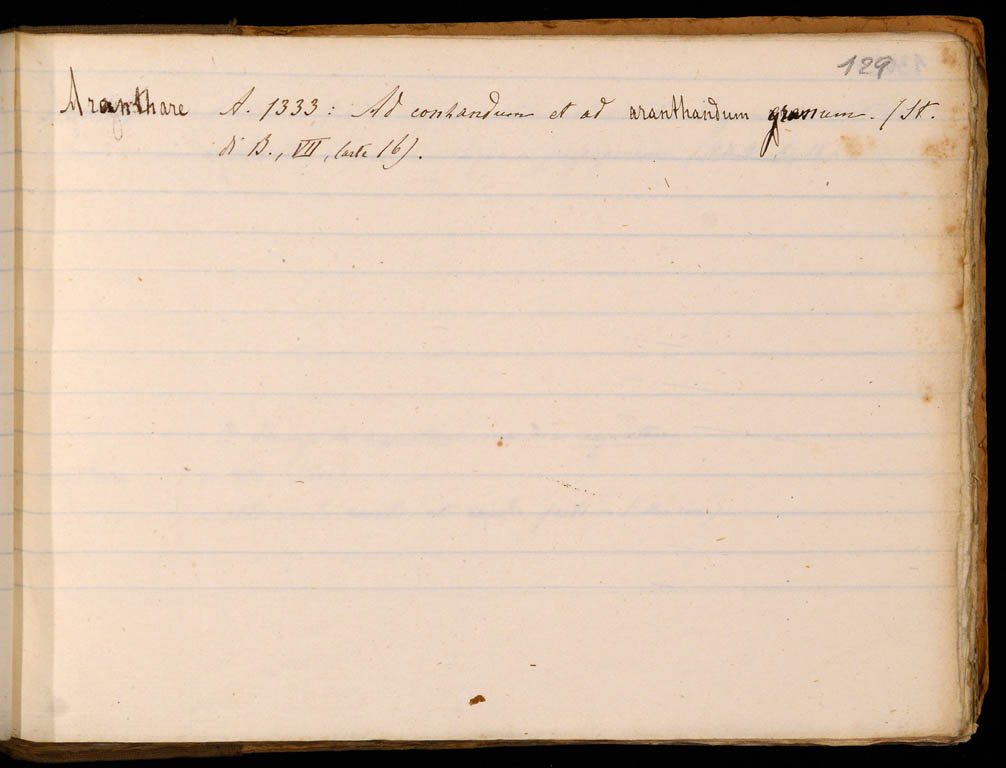 129
Aranthare A. 1333: Ad conhandum et ad aranthandum granum. (St.
di B., VII, Carte 16).